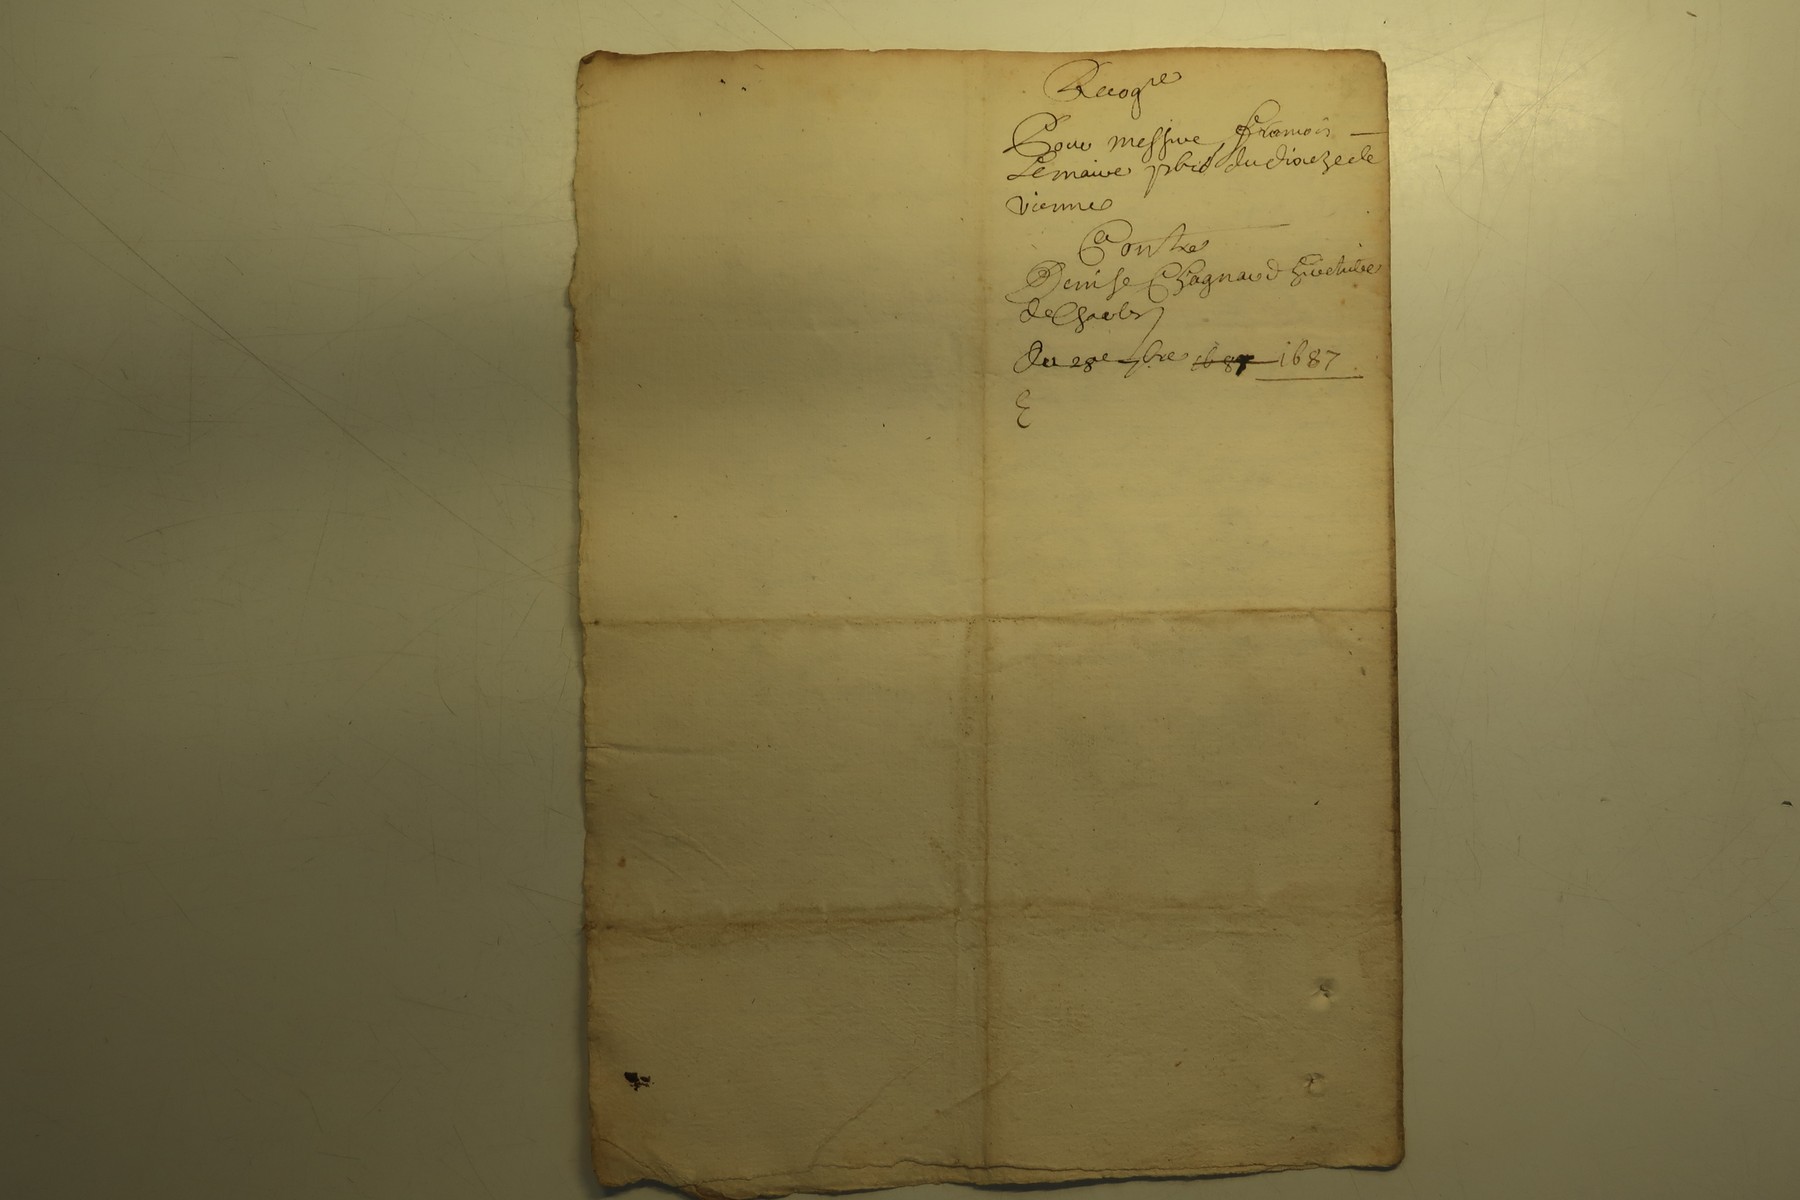 Recog^re
Pour messire francois
Lemaire pbre du diocze de
vienne
Contre
Denise Chagnard
de Charles
du 28^e 7bre 1687 1687